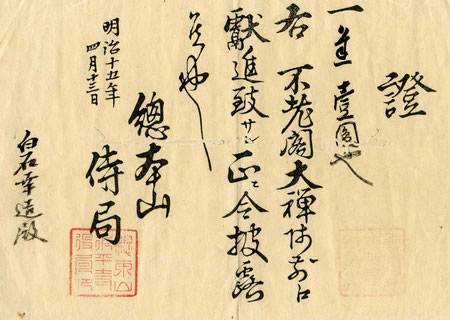 證
一金 壹圓也
右 不老閣大禅師
獻進致サレ正ニ令披露
候也
明治十五年
四月十三日
總本山
侍局
白石幸造殿